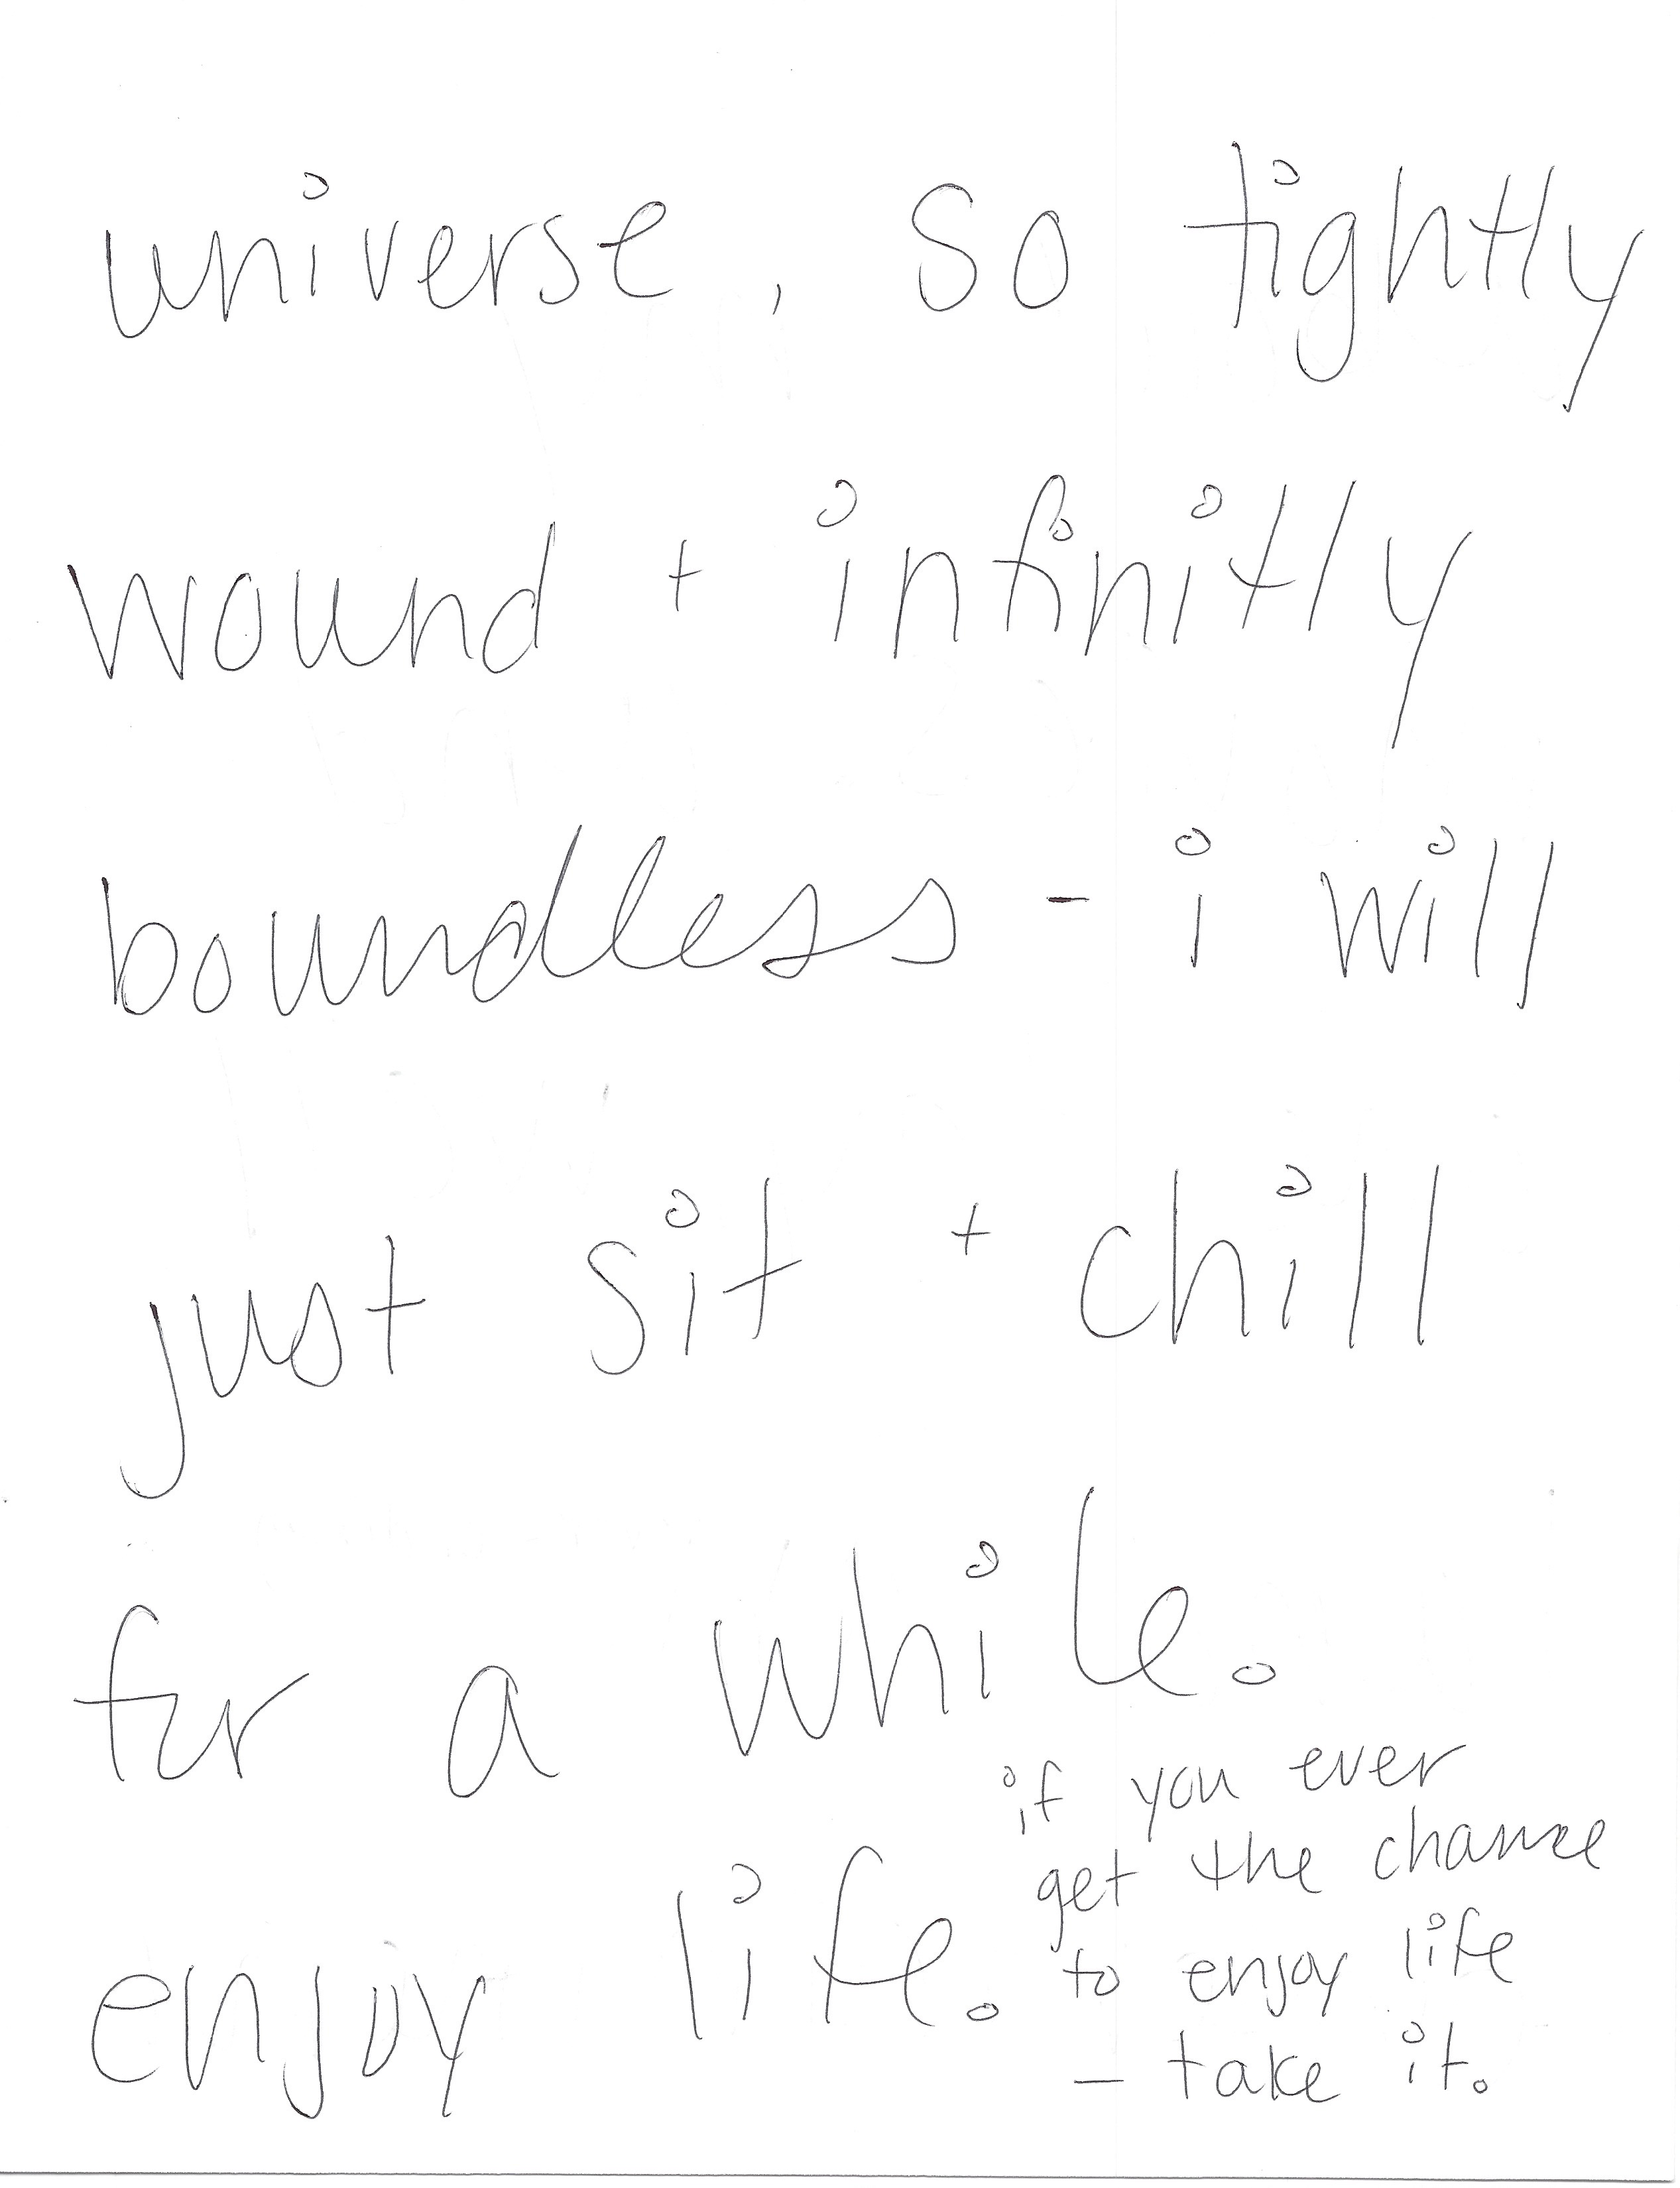 universe, so tightly
wound + infinitly
boundless - i will
just sit + chill
for a while.
enjoy life.
if you ever
get the chance
to enjoy life
- take it.